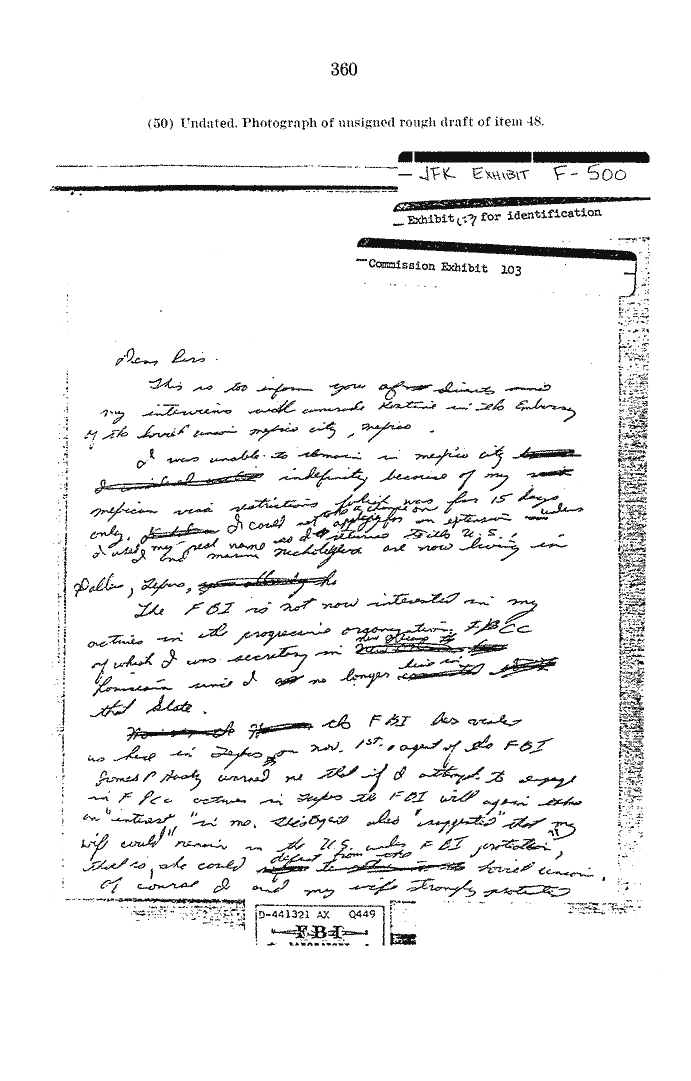 360
(50) Undated. Photograph of unsigned rough draft of item 48.
JFK EXHIBIT F-500
Exhibit for identification
Commission Exhibit 103
Dear Sirs.
This is too inform you of
my interviews with comrade Kostine in the Embassy
of the Soviet union mexico city, mexico.
I was unable to remain in mexico city
indefinity because of my
mexican visa restrictions which was for 15 days
only. I could not apply for an extension unless
I used my real name so I returned to the U.S.
I and marina nicholeyeva are now living in
Dallas, Texas,
The FBI is not now interested in my
activies in the progressive organization FPCC
of which I was secretary in new orleans
Louisiana since I no longer live in
that State.
the FBI has visited
us here in Texas on nov. 1st. agent of the FBI
James P. Hasty warned me that if I attempt to engage
in FPCC activies in Texas the FBI will again take
an "interest" in me. also "suggested" that my
wife could "remain in the U.S. under FBI protection",
that is, she could defect from the Soviet union.
Of course I and my wife strongly protested
D-441321 AX Q449
FBI
LABORATORY